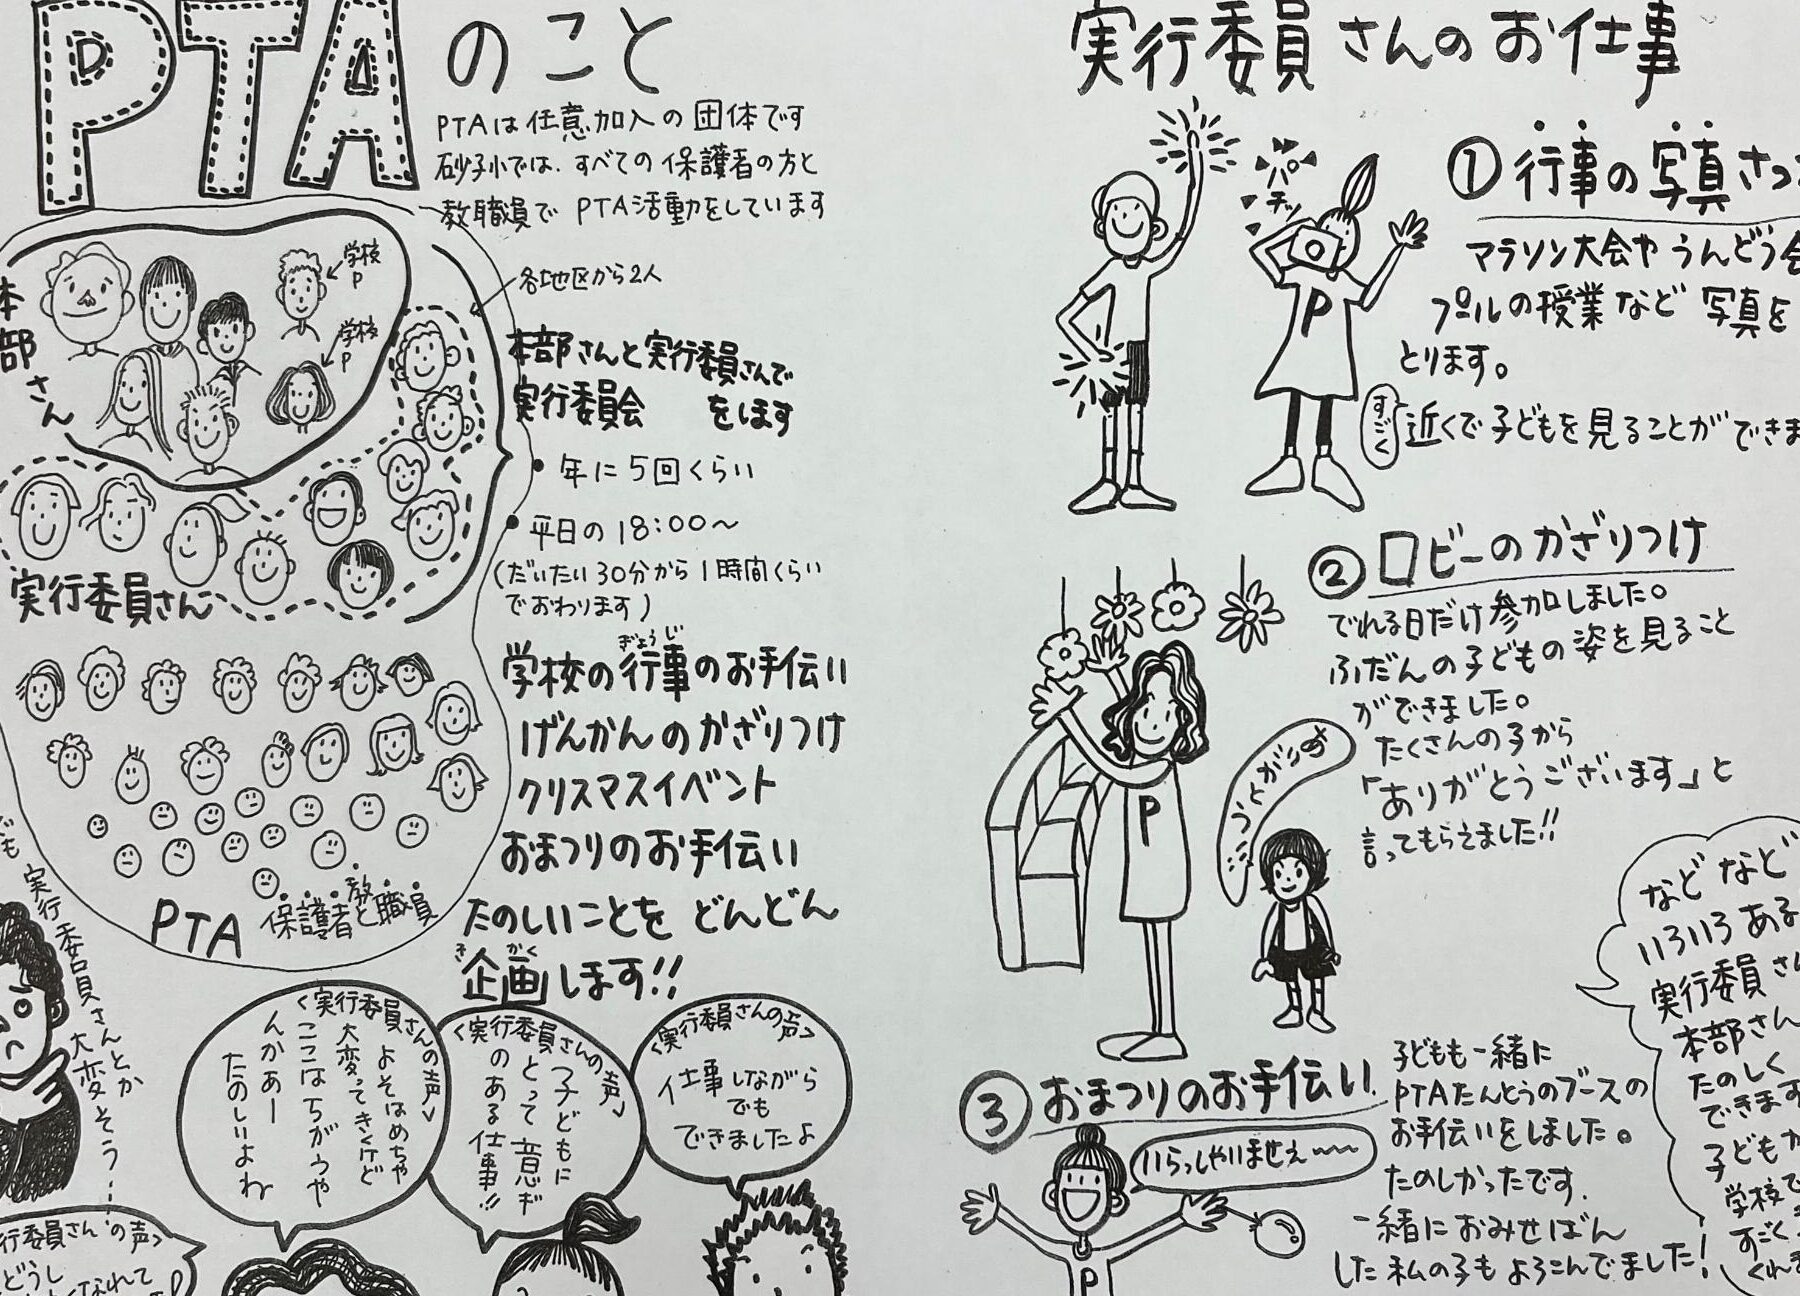 PTAのこと
PTAは任意加入の団体です
砂子小では、すべての保護者の方と
教職員で PTA活動をしています
本部さん
学校P
学校P
各地区から2人
実行委員さん
本部さんと実行委員さんで
実行委員会 をします
・年に5回くらい
・平日の18:00〜
(だいたい30分から1時間くらい
でおわります)
学校の行事のお手伝い
ぎょうじ
げんかんのかざりつけ
クリスマスイベント
おまつりのお手伝い
たのしいことを どんどん
企画します!!
きかく
PTA 保護者と教職員
実行委員さんとか
大変そう…
<実行委員さんの声>
よそはめちゃ
大変ってきくけど
ここはちがうや
んかあー
たのしいよね
<実行委員さんの声>
子どもに
とって意ギ
のある仕事!!
<実行委員さんの声>
仕事しながら
でも
できましたよ
行委員さんの声>
実行委員さんのお仕事
①行事の写真さつ
マラソン大会やうんどう会
プールの授業など 写真を
とります。
すごく
近くで子どもを見ることができま
パチッ
P
②ロビーのかざりつけ
でれる日だけ参加しました。
ふだんの子どもの姿を見ること
ができました。
たくさんの子から
「ありがとうございます」と
言ってもらえました!!
P
③おまつりのお手伝い
子どもも一緒に
PTAたんとうのブースの
お手伝いをしました。
たのしかったです。
一緒におみせばん
した私の子もよろこんでました!
いらっしゃいませぇ〜〜
P
などなど
いろいろある
実行委員さ
本部さん
たのしく
できます
子どもが
学校で
すごく
くれま